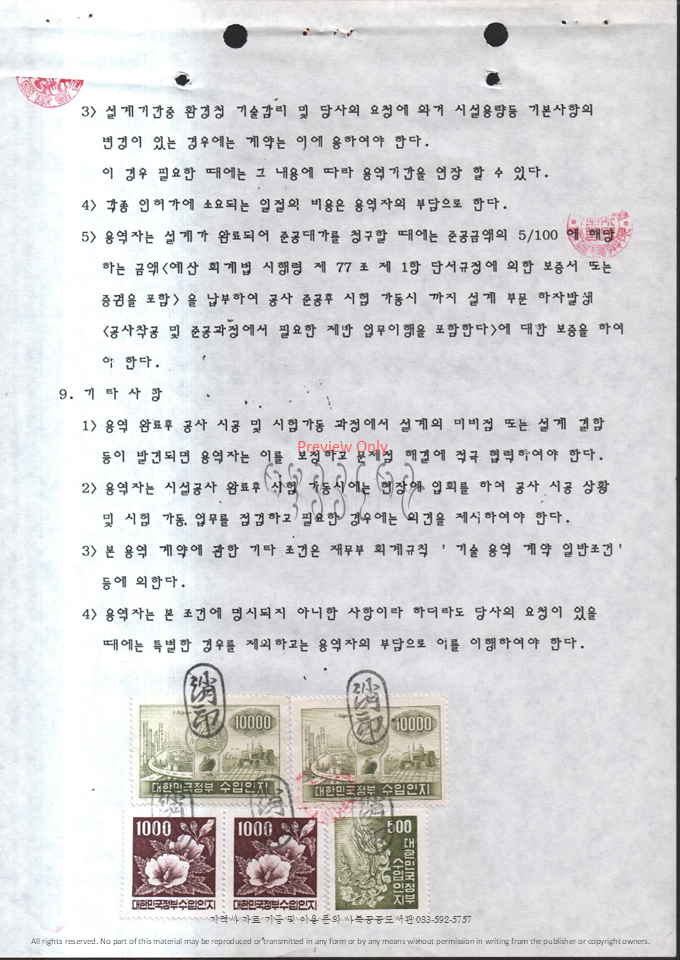 3) 설계기간중 환경청 기술감리 및 당사의 요청에 의거 시설용량등 기본사항의
변경이 있는 경우에는 계약는 이에 응하여야 한다.
이 경우 필요한 때에는 그 내용에 따라 용역기간을 연장 할 수 있다.
4) 각종 인허가에 소요되는 일절의 비용은 용역자의 부담으로 한다.
5) 용역자는 설계가 완료되어 준공대가를 청구할 때에는 준공금액의 5/100 에 해당
하는 금액<예산 회계법 시행령 제 77 조 제 1항 단서규정에 의한 보증서 또는
증권을 포함> 을 납부하여 공사 준공후 시험 가동시 까지 설계 부문 하자발생
<공사착공 및 준공과정에서 필요한 제반 업무이행을 포함한다>에 대한 보증을 하여
야 한다.
9. 기 타 사 항
1) 용역 완료후 공사 시공 및 시험가동 과정에서 설계의 미비점 또는 설계 결함
등이 발견되면 용역자는 이를 보정하고 문제점 해결에 적극 협력하여야 한다.
Preview Only
2) 용역자는 시설공사 완료후 시험 가동시에는 현장에 입회를 하여 공사 시공 상황
및 시험 가동 업무를 점검하고 필요한 경우에는 의견을 제시하여야 한다.
3) 본 용역 계약에 관한 기타 조건은 재무부 회계규칙 ' 기술 용역 계약 일반조건 '
등에 의한다.
4) 용역자는 본 조건에 명시되지 아니한 사항이라 하더라도 당사의 요청이 있을
때에는 특별한 경우를 제외하고는 용역자의 부담으로 이를 이행하여야 한다.
消印
消印
10000
10000
대한민국정부 수입인지
대한민국정부 수입인지
1000
1000
500
대한민국정부수입인지
대한민국정부수입인지
대한민국정부
수입인지
지역사 자료 기증 및 이용 문의 사북공공도서관 033-592-5757
All rights reserved. No part of this material may be reproduced or transmitted in any form or by any means without permission in writing from the publisher or copyright owners.